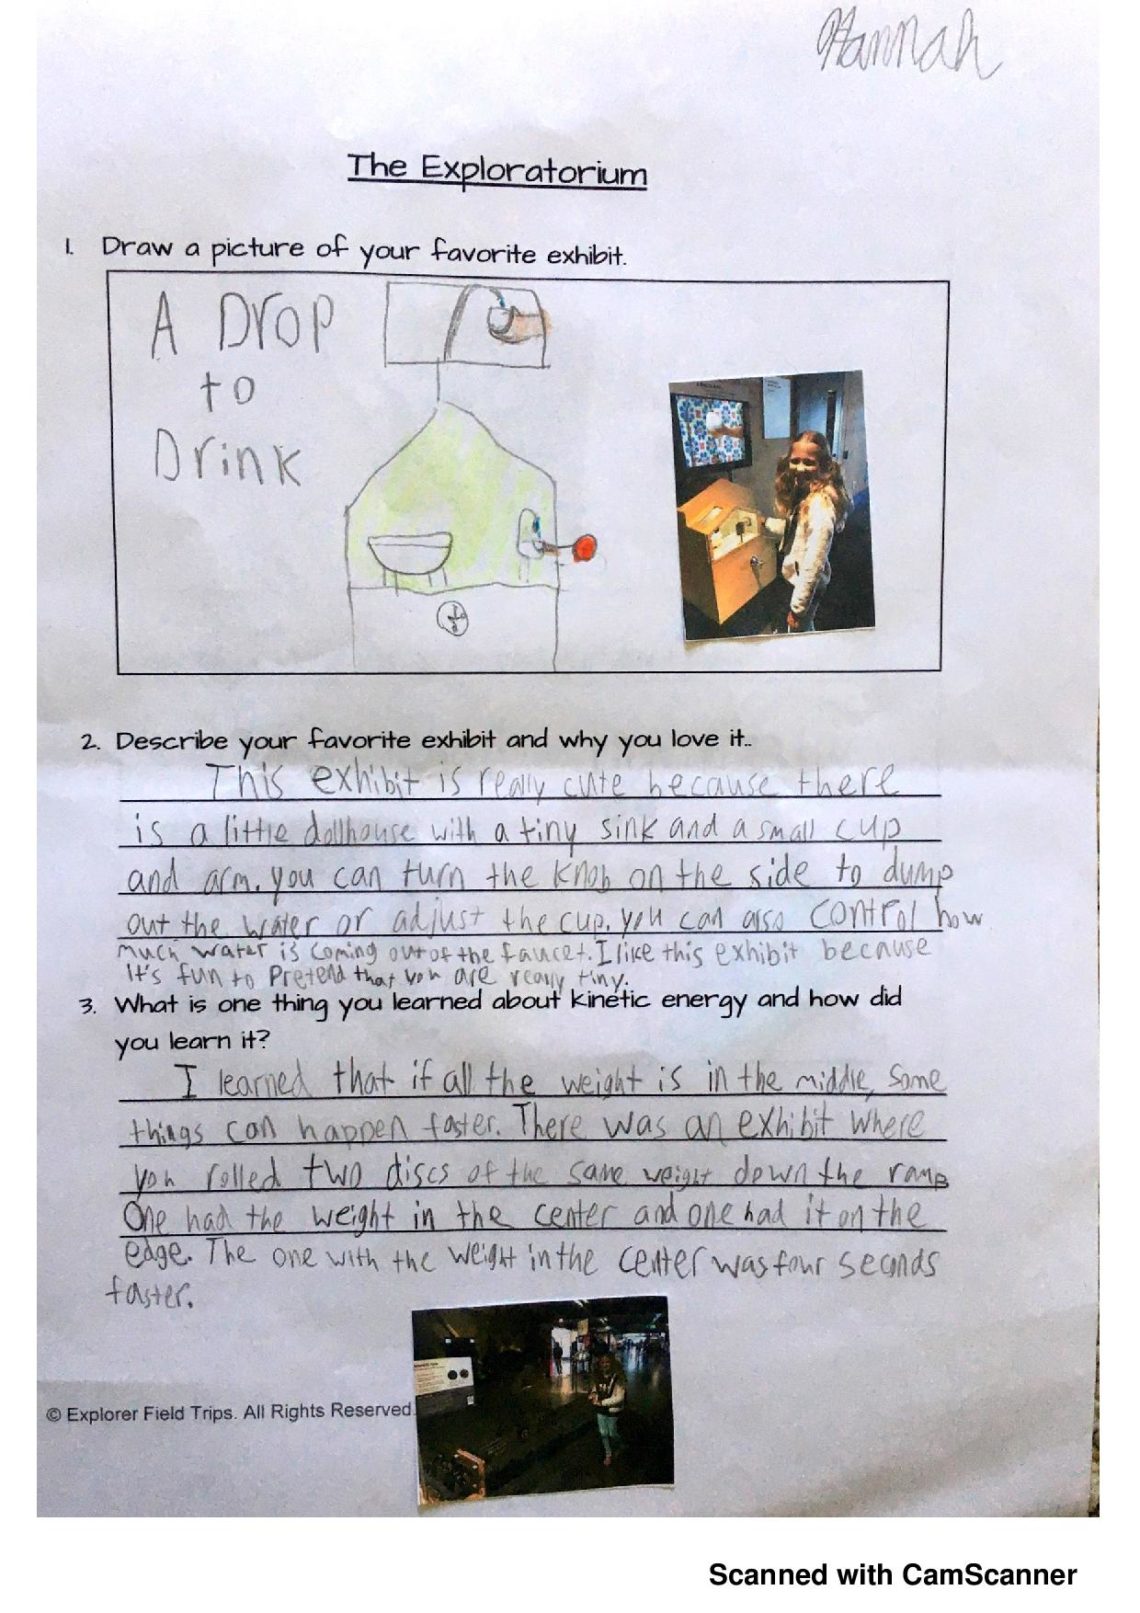 Hannah
The Exploratorium
1. Draw a picture of your favorite exhibit.
A Drop
to
Drink
2. Describe your favorite exhibit and why you love it..
This exhibit is really cute because there
is a little dollhouse with a tiny sink and a small cup
and arm. you can turn the knob on the side to dump
out the water or adjust the cup. you can also control how
much water is coming out of the faucet. I like this exhibit because
it's fun to pretend that you are really tiny.
3. What is one thing you learned about kinetic energy and how did
you learn it?
I learned that if all the weight is in the middle, some
things can happen faster. There was an exhibit where
you rolled two discs of the same weight down the ramp
One had the weight in the center and one had it on the
edge. The one with the weight in the center was four seconds
faster.
© Explorer Field Trips. All Rights Reserved.
Scanned with CamScanner